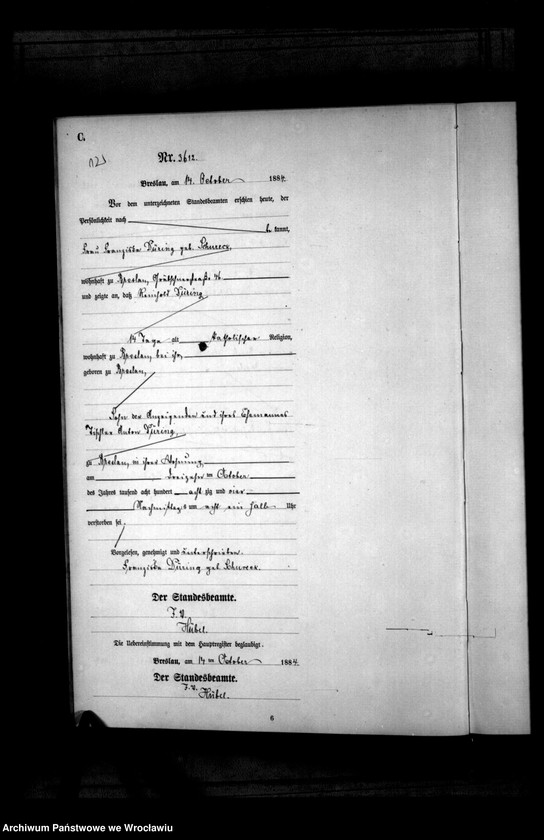 C.
Nr. 3612.
Breslau, am 14. October 1884.
Vor dem unterzeichneten Standesbeamten erschien heute, der
Persönlichkeit nach
be kannt,
Frau Franziska Düring geb.
wohnhaft zu Breslau,
und zeigte an, daß Reinhold Düring
14 Tage alt katholischer Religion,
wohnhaft zu Breslau, bei ihr,
geboren zu Breslau,
Sohn der Anzeigenden und ihres Ehemannes
Tischler Anton Düring,
zu Breslau, in ihrer Wohnung
am dreizehnten October
des Jahres tausend acht hundert achtzig und vier
Nachmittags um acht ein halb Uhr
verstorben sei.
Vorgelesen, genehmigt und unterschrieben.
Franziska Düring geb.
Der Standesbeamte.
J. V.
Hübel.
Die Uebereinstimmung mit dem Hauptregister beglaubigt.
Breslau, am 14 ten October 1884.
Der Standesbeamte.
J. V.
Hübel.
6
Archiwum Państwowe we Wrocławiu